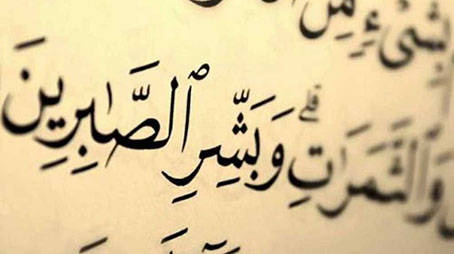 بِشَيْءٍ مِّنَ
وَالثَّمَرَاتِ ۗ وَبَشِّرِ الصَّابِرِينَ